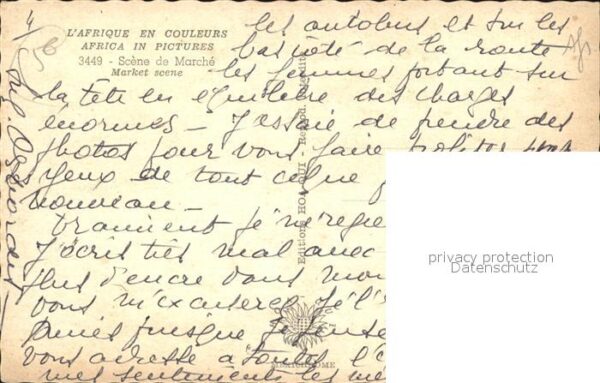 4
L'AFRIQUE EN COULEURS
AFRICA IN PICTURES
3449 - Scène de Marché
Market scene
les autobus et sur les
bas côté de la route
les femmes portant sur
la tête en équilibre des charges
énormes - J'essaie de prendre des
photos pour vous faire profiter
yeux de tout ce que
nouveau -
Vraiment je
J'écris très mal avec
plus d'encre dans mon
vous m'excuserez
puisque je
vous adresse à toutes
mes sentiments les
Editions HOA-QUI - Reprod. interdite
privacy protection
Datenschutz